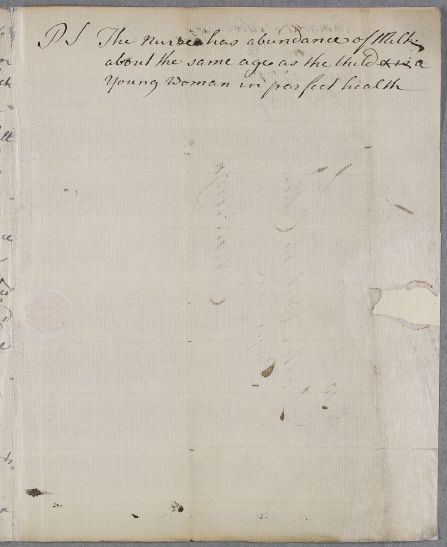 P S The nurse has abundance of Milk
about the same age as the Child & is a
Young Woman in parfect health